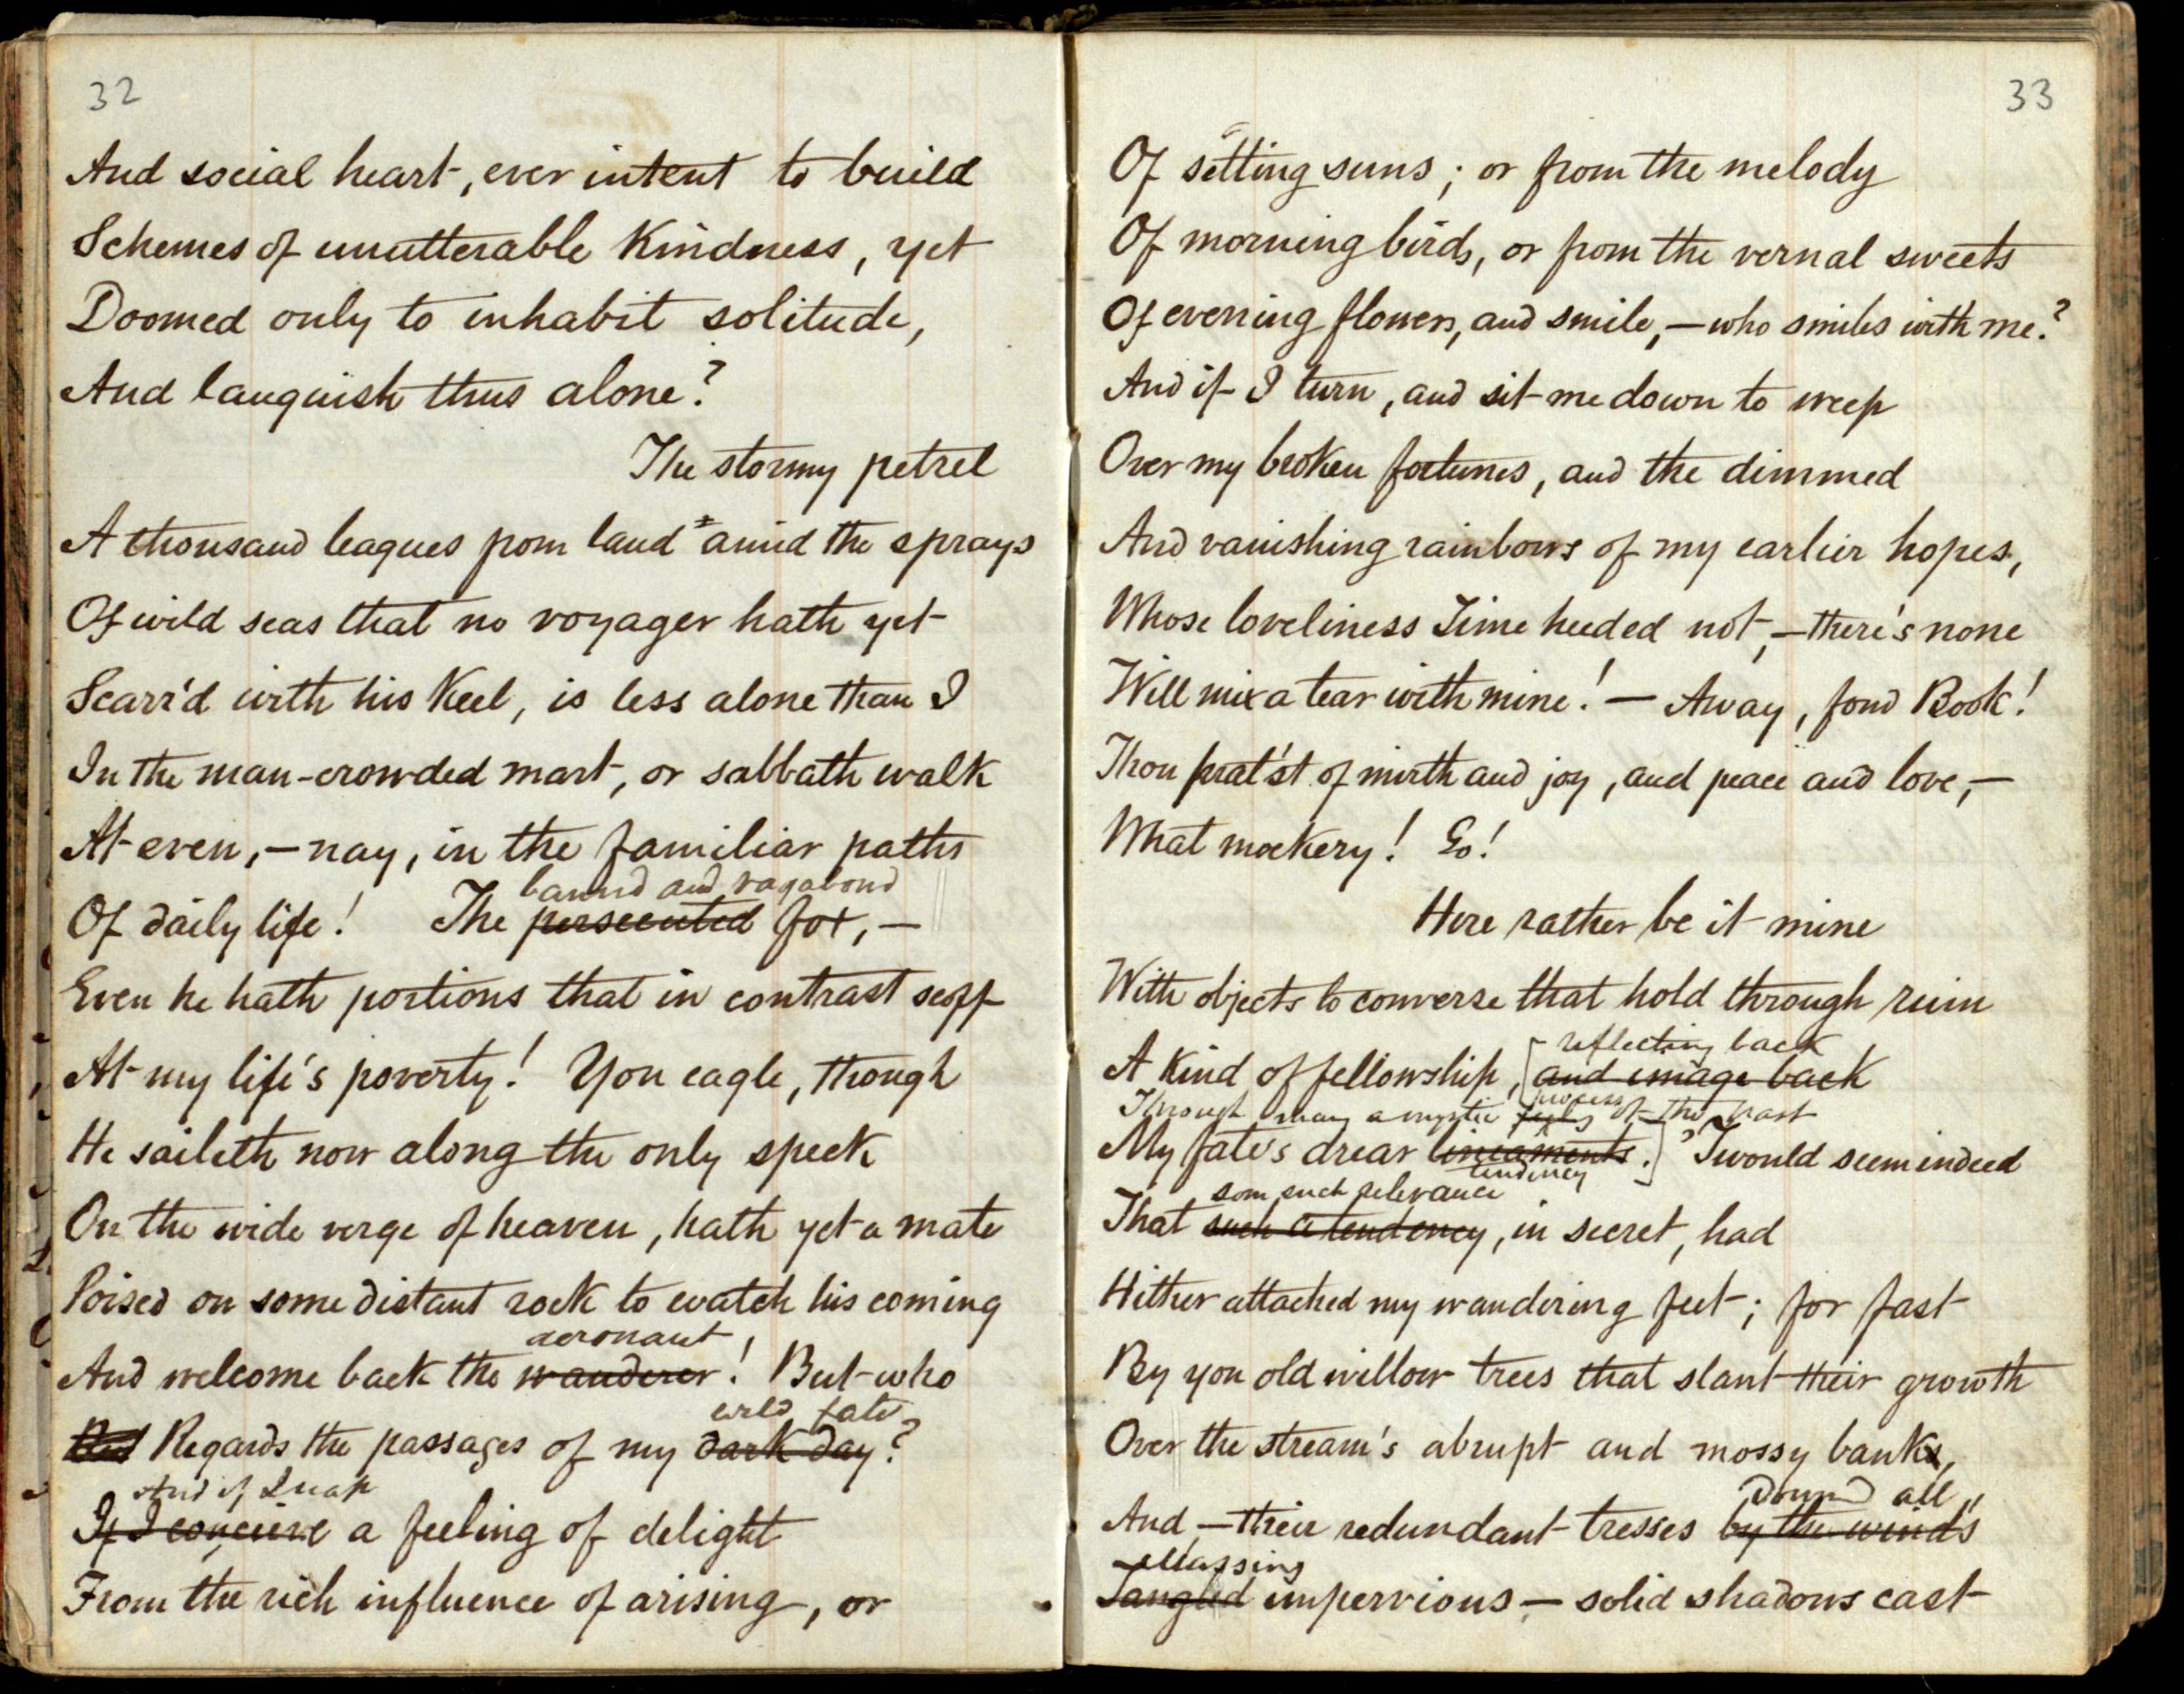 32
And social heart, ever intent to build
Schemes of unutterable kindness, yet
Doomed only to inhabit solitude,
And languish thus alone?
The stormy petrel
A thousand leagues from land amid the sprays
Of wild seas that no voyager hath yet
Scarr'd with his keel, is less alone than I
In the man-crowded mart, or sabbath walk
At even, — nay, in the familiar paths
bann'd and vagabond
Of daily life! The persecuted fox, —
Even he hath portions that in contrast scoff
At my life's poverty! Yon eagle, though
He saileth now along the only speck
On the wide verge of heaven, hath yet a mate
Poised on some distant rock to watch his coming
aeronaut
And welcome back the wanderer! But who
wild fate
But Regards the passages of my dark day?
And if I reap
If I conceive a feeling of delight
From the rich influence of arising, or
33
Of setting suns; or from the melody
Of morning birds, or from the vernal sweets
Of evening flowers, and smile, — who smiles with me?
And if I turn, and sit me down to weep
Over my broken fortunes, and the dimmed
And vanishing rainbows of my earlier hopes,
Whose loveliness Time heeded not, — there's none
Will mix a tear with mine! — Away, fond Book!
Thou prat'st of mirth and joy, and peace and love, —
What mockery! Go!
Here rather be it mine
With objects to converse that hold through ruin
reflecting back
A kind of fellowship, [and image back
process
Through many a mystic of the past
My fate's drear lineaments.] 'Twould seem indeed
tendency
some such relevance
That such a tendency, in secret, had
Hither attached my wandering feet; for fast
By yon old willow trees that slant their growth
Over the stream's abrupt and mossy banks,
Down all
And, — their redundant tresses by the winds
Massing
Tangled impervious, — solid shadows cast